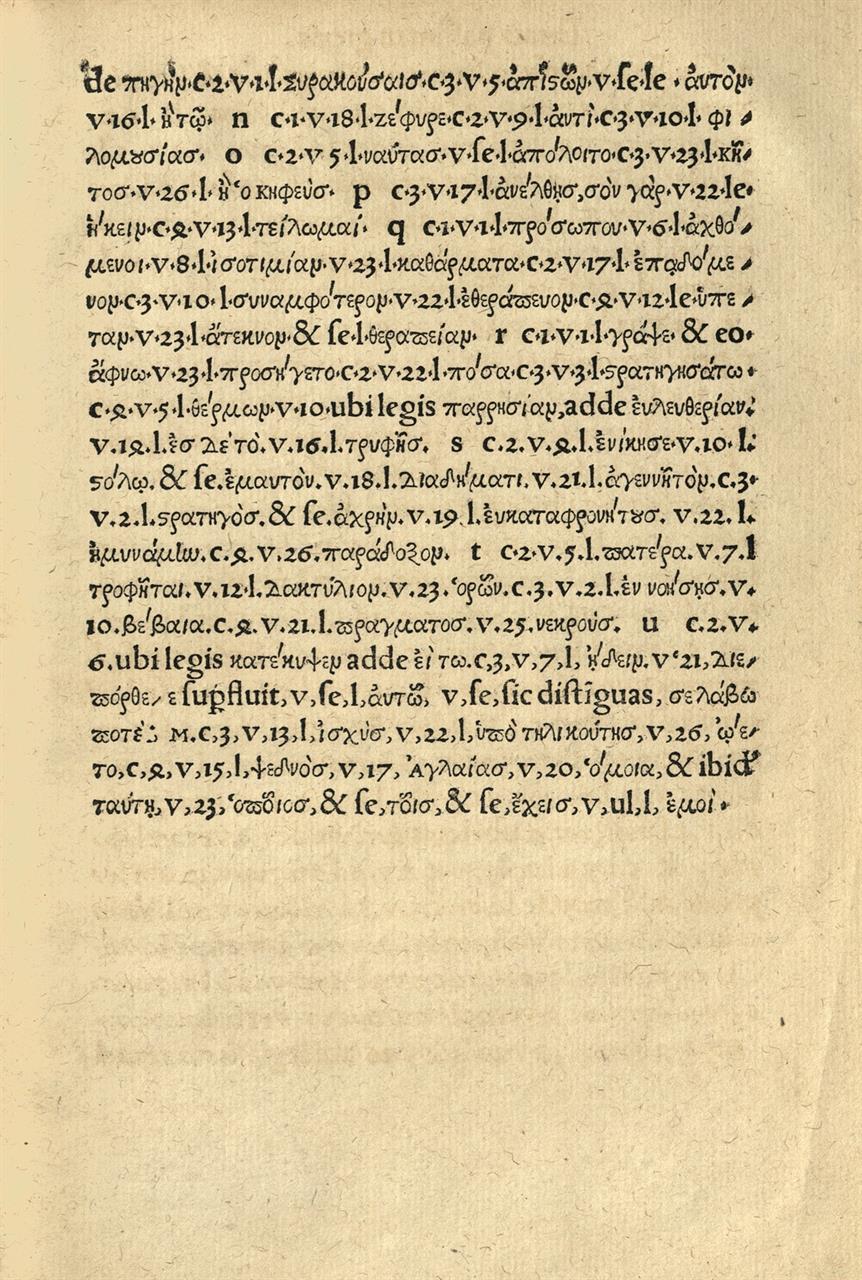 de πηγὴν·c·2·v·1·l·Συρακούσαισ·c·3·v·5·ἀπιϛῶν·v·se·le·ἀυτὸν·
v·16·l·ἢτῷ· n c·1·v·18·l·ζέφυρε·c·2·v·9·l·ἀντὶ·c·3·v·10·l· φι⸗
λομȣσίασ· o c·2·v 5·l·ναύτασ·v·se·l·ἀπόλοιτο·c·3·v·23·l·κῆ
τοσ·v·26·l·ἢ ὁ κηφεὺσ· p c·3·v·17·l·ἀνέλθῃσ,σὸν γὰρ·v·22·le·
ἥκειν·c·4·v·13·l·τείλωμαί· q c·1·v·1·l·πρόσωπου·v·6·l·ἀχθό⸗
μενοι·v·8·l·ἰσοτιμίαν·v·23·l·καθάρματα·c·2·v·17·l·ἐπᾳδόμε⸗
νον·c·3·v·10·l·συναμφότερον·v·22·l·ἐθεράπευον·c·4·v·12·le·ὑπε⸗
ταν·v·23·l·ἄτεκνον·& se·l·θεραπείαν· r c·1·v·1·l·γράψε·& eo·
ἄφνω·v·23·l·προσήγετο·c·2·v·22·l·πόσα·c·3·v·3·l·ϛρατηγησάτω·
c·4·v·5·l·θέρμων·v·10·ubi legis παρρησίαν,adde ἐυλευθερίαν:
v.14.l.ἐσ Δὲ τὸ.v.16.l.τρυφῆσ. s c.2.v.4.l.ἐνίκησε·v.10·l:
ϛόλῳ.& se.ἐμαυτὸν.v.18.l.Διαδήματι.v.21.l.ἀγεννῆτὸν.c.3·
v.2.l.ϛρατηγὸσ.& se.ἀχρὴν.v.19.l.ἐυκαταφρονήτȣσ. v.22.l.
ἠμυνάμȣ.c.4.v.26.παράδοξον. t c·2·v.5.l.πατέρα.v.7.l
τροφῆται.v.12·l.Δακτύλιον.v.23.ὁρῶν.c.3.v.2.l.ἐν νοήσῃσ.v·
10.βέβαια.c.4.v.21.l.πραγματοσ.v.25.νεκρούσ. u c.2.v·
6.ubi legis κατέκυψεν adde ἐί τω.c,3,v,7,l, ἤδειν.v 21,Διε⸗
πόρθε⸗ ε supfluit,v,se,l,ἀυτῶ, v,se,sic distīguas, σε λάβω
ποτέ: м.c,3,v,13,l,ἰσχύσ,v,22,l,ὑπὸ τηλικούτησ,v,26, ᾤε⸗
το,c,4,v,15,l,ψεδνὸσ,v,17, Ἀγλαίασ,v,20,ὅμοια,& ibid
ταύτῃ,v,23,ὁποῖοσ,& se,τοῖσ,& se,ἔχεισ,v,ul,l, ἐμοὶ·